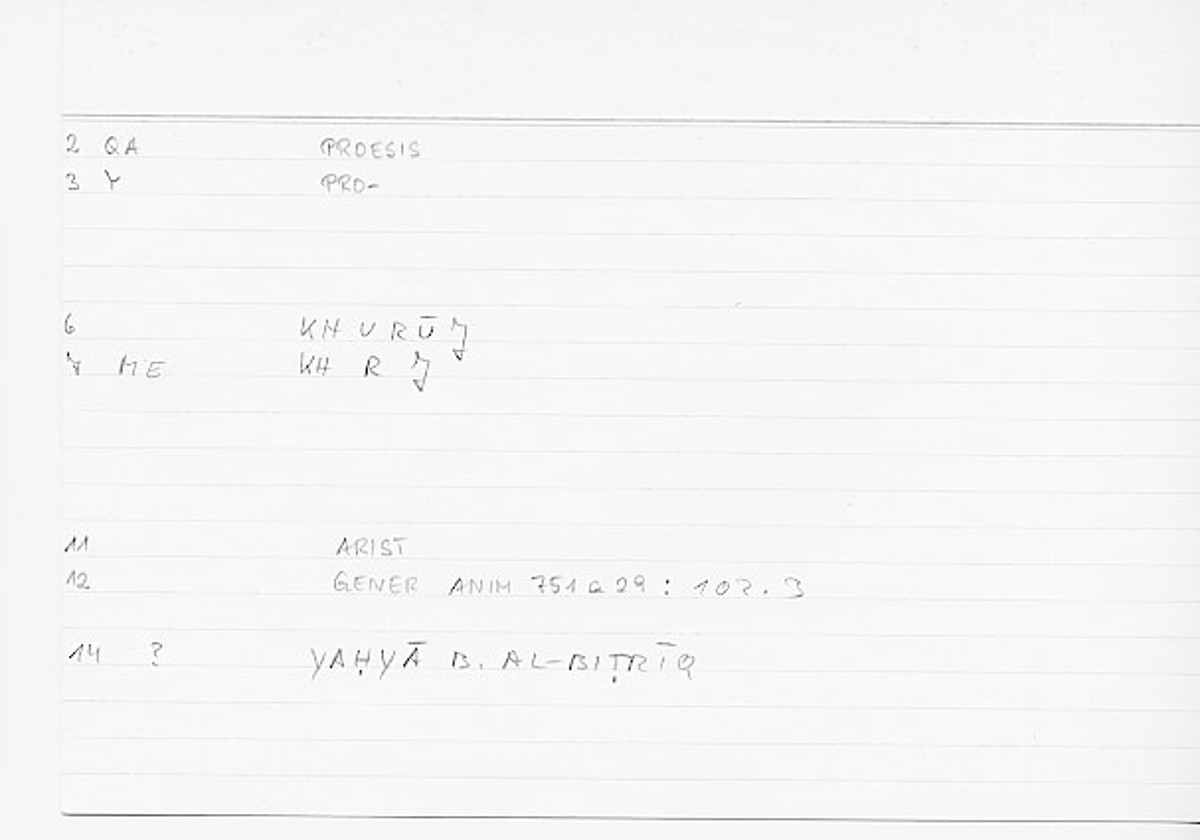 2 QA PROESIS
3 Y PRO-
6 KHURŪJ
7 ME KH R J
11 ARIST
12 GENER ANIM 751a29 : 102.3
14 ? YAḤYĀ B. AL-BIṬRĪQ